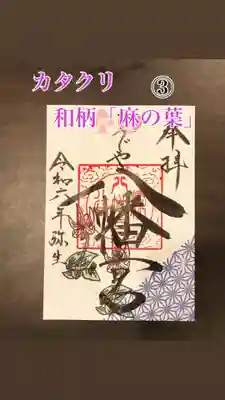 カタクリ ③
和柄「麻の葉」
奉拝
八幡宮
令和六年 弥生